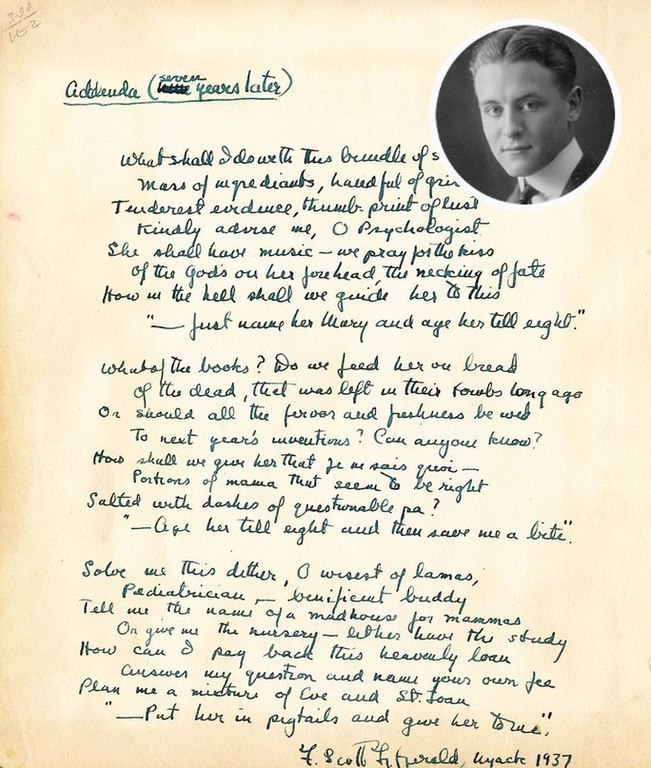 Addenda (seven years later)
What shall I do with this bundle of s
Mass of ingrediants, handful of gri
Tenderest evidence, thumb-print of lust
Kindly advise me, O Psychologist
She shall have music — we pray for the kiss
of the god's on her forehead, the necking of fate
How in the hell shall we guide her to this
"— Just name her Mary and age her till eight."
What of the books? Do we feed her on bread
of the dead, that was left in their tombs long ago
Or should all the fervor and freshness be wed
To next year's inventions? Can anyone know?
How shall we give her that je ne sais quoi —
Portions of mama that seem to be right
Salted with dashes of questionable pa?
"— Age her till eight and then save me a bite".
Solve me this dither, O wisest of lamas,
Pediatrician — benificent buddy
Tell me the name of a madhouse for mammas
Or give me the nursery — let her have the study
How can I pay back this heavenly loan
Answer my question and name your own fee
Plan me a mixture of Eve and St. Joan
"— Put her in pigtails and give her to me".
F. Scott Fitzgerald, Nyack 1937